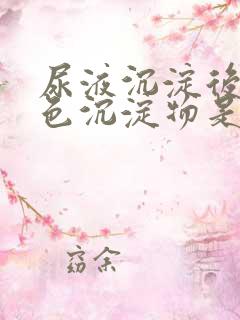 尿液沉淀後
色沉淀物是
窈余